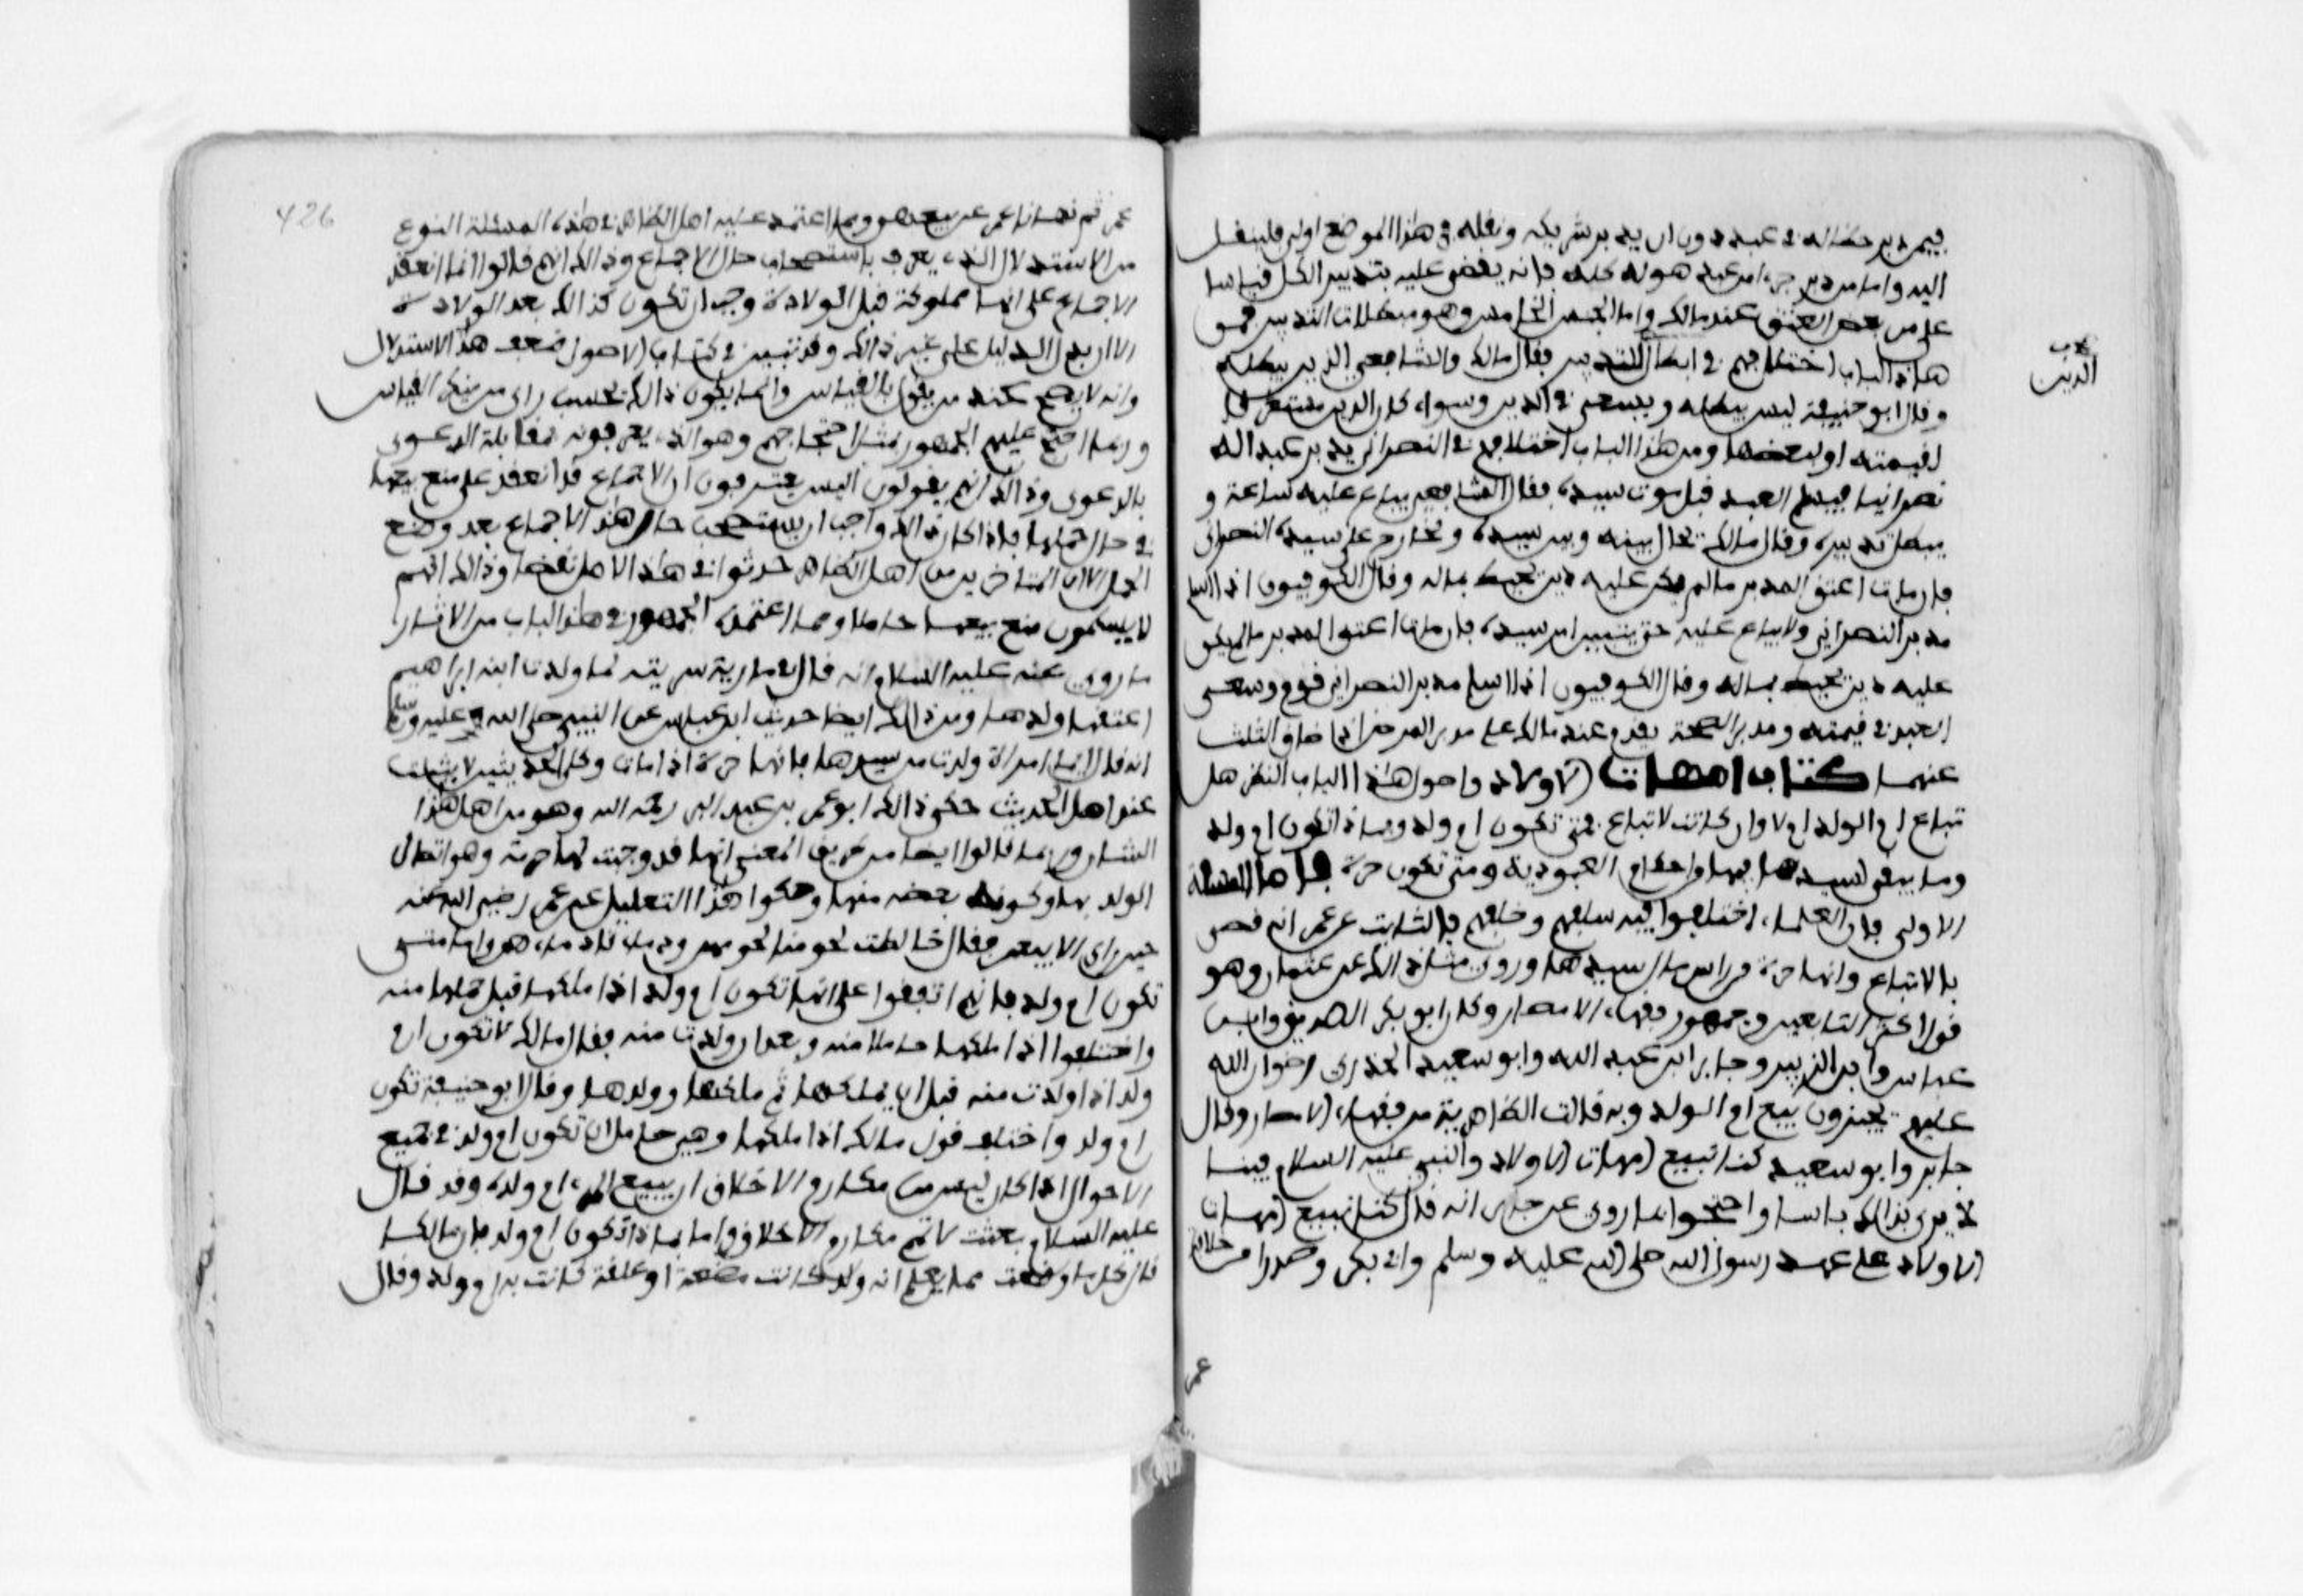 فيمن دبر حظا له في عبد دون ان يدبر شريكه ونقله في هذا الموضع اولى فلينقل
اليه واما من دبر جزءا من عبد هو له كله فانه يقضى عليه بتدبير الكل قياسا
على من بعض العتق عند مالك واما الجنس الخامس وهو مبطلات التدبير فمن
هذا الباب اختلافهم في ابطال الدين للتدبير فقال مالك والشافعي الدين يبطله
وقال ابو حنيفة ليس يبطله ويسعى في الدين وسواء كان الدين مستغرقا
لقيمته او لبعضها ومن هذا الباب اختلافهم في النصراني يدبر عبدا له
نصرانيا فيسلم العبد قبل موت سيده فقال الشافعي يباع عليه ساعة و
يبطل تدبيره وقال مالك يحال بينه وبين سيده ويخارج على سيده النصراني
فان مات اعتق المدبر ما لم يكن عليه دين يحيط بماله وقال الكوفيون اذا اسلم
مدبر النصراني ولا يباع عليه حتى يتبين امر سيده فان مات اعتق المدبر ما لم يكن
عليه دين يحيط بماله وقال الكوفيون اذا اسلم مدبر النصراني قوم وسعى
العبد في قيمته ومدبر الصحة يقدم عند مالك على مدبر المرض اذا ضاق الثلث
عنهما كتاب امهات الاولاد واصول هذا الباب النظر هل
تباع ام الولد ام لا وان كانت لا تباع فمتى تكون ام ولد وبماذا تكون ام ولد
وما يبقى لسيدها فيها من احكام العبودية ومتى تكون حرة فاما المسئلة
الاولى فان العلماء اختلفوا فيه سلفهم وخلفهم فالثابت عن عمر انه قضى
بالا تباع وانها حرة من راس مال سيدها وروى مثل ذالك عن عثمان وهو
قول اكثر التابعين وجمهور فقهاء الامصار وكان ابو بكر الصديق وابن
عباس وابن الزبير وجابر ابن عبد الله وابو سعيد الخدري رضوان الله
عليهم يجيزون بيع ام الولد وبه قالت الظاهرية من فقهاء الامصار وقال
جابر وابو سعيد كنا نبيع امهات الاولاد والنبي عليه السلام فينا
لا يرى بذالك باسا واحتجوا بما روي عن جابر انه قال كنا نبيع امهات
الاولاد على عهد رسول الله صلى الله عليه وسلم وابي بكر وصدرا من خلافة
عمر
الدين
426
عمر ثم نهانا عمر عن بيعهن ومما اعتمد عليه اهل الظاهر في هذه المسئلة النوع
من الاستدلال الذي يعرف باستصحاب حال الاجماع وذالك انهم قالوا لما انعقد
الاجماع على انها مملوكة قبل الولادة وجب ان تكون كذالك بعد الولادة
الا ان يدل الدليل على غير ذالك وقد تبين في كتاب الاصول ضعف هذا الاستدلال
وانه لا يصح عند من يقول بالقياس وانما يكون ذالك بحسب راى من ينكر القياس
وربما احتج عليهم الجمهور بمثل احتجاجهم وهو الذي يعرفونه بمقابلة الدعوى
بالدعوى وذالك انهم يقولون اليس يعترفون ان الاجماع قد انعقد على منع بيعها
في حال حملها فاذا كان ذالك واجب ان يستصحب حال هذا الاجماع بعد وضع
الحمل الا ان المتاخرين من اهل الظاهر حدثوا في هذا الاصل نقضا وذالك انهم
لا يسلمون منع بيعها حاملا ومما اعتمده الجمهور في هذا الباب من الاثار
ما روي عنه عليه السلام انه قال في مارية سريته لما ولدت ابنه ابراهيم
اعتقها ولدها ومن ذالك ايضا حديث ابن عباس عن النبي صلى الله عليه وسلم
انه قال ايما امراة ولدت من سيدها فانها حرة اذا مات وكلا الحديثين لا يثبت
عند اهل الحديث حكى ذالك ابو عمر بن عبد البر رحمه الله وهو من اهل هذا
الشان وربما قالوا ايضا من طريق المعنى انها قد وجبت لها حرمة وهو اتصال
الولد بها وكونه بعضه منها وحكوا هذا التعليل عن عمر رضي الله عنه
حين راى الا يبعن فقال خالطت لحومنا لحومهن ودماءنا دماءهن واما متى
تكون ام ولد فانهم اتفقوا على انها تكون ام ولد اذا ملكها قبل حملها منه
واختلفوا اذا ملكها حاملا منه وبعد ان ولدت منه فقال مالك لا تكون ام
ولد اذا ولدت منه قبل ان يملكها ثم ملكها وولدها وقال ابو حنيفة تكون
ام ولد واختلف قول مالك اذا ملكها وهي حامل ان تكون ام ولد في جميع
الاحوال اذا كان ليس من مكارم الاخلاق ان يبيع المرء ام ولده وقد قال
عليه السلام بعثت لاتمم مكارم الاخلاق واما بماذا تكون ام ولد فان مالكا
قال كل ما وضعت مما يعلم انه ولد كانت مضغة او علقة كانت به ام ولد وقال